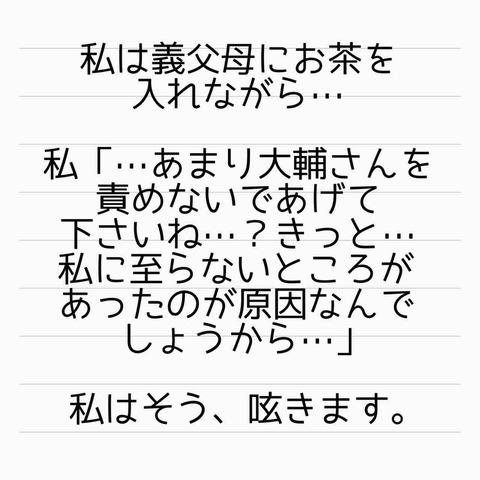 私は義父母にお茶を
入れながら…
私「…あまり大輔さんを
責めないであげて
下さいね…？きっと…
私に至らないところが
あったのが原因なんで
しょうから…」
私はそう、呟きます。